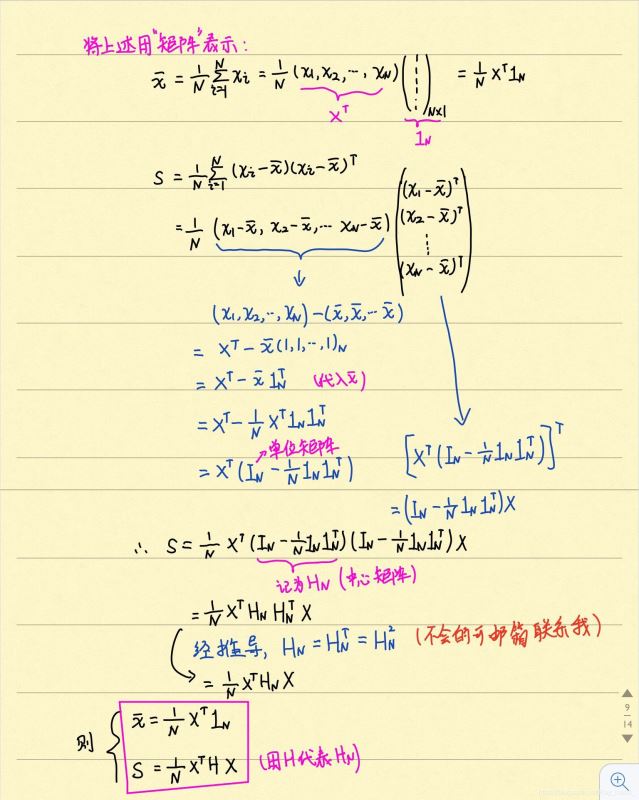 将上述用"矩阵"表示:
x̄ = 1/N ∑_{i=1}^{N} xᵢ = 1/N (x₁, x₂, ⋯, x_N) ( ┆ )_{N×1} = 1/N Xᵀ 1_N
Xᵀ
1_N
S = 1/N ∑_{i=1}^{N} (xᵢ - x̄)(xᵢ - x̄)ᵀ
= 1/N (x₁ - x̄, x₂ - x̄, ⋯ x_N - x̄) ( (x₁ - x̄)ᵀ
(x₂ - x̄)ᵀ
⋮
(x_N - x̄)ᵀ )
(x₁, x₂, ⋯, x_N) - (x̄, x̄, ⋯ x̄)
= Xᵀ - x̄(1, 1, ⋯, 1)_N
= Xᵀ - x̄ 1_Nᵀ (代入x̄)
= Xᵀ - 1/N Xᵀ 1_N 1_Nᵀ
单位矩阵
= Xᵀ (I_N - 1/N 1_N 1_Nᵀ)
[Xᵀ (I_N - 1/N 1_N 1_Nᵀ)]ᵀ
= (I_N - 1/N 1_N 1_Nᵀ) X
∴ S = 1/N Xᵀ (I_N - 1/N 1_N 1_Nᵀ)(I_N - 1/N 1_N 1_Nᵀ) X
记为H_N (中心矩阵)
= 1/N Xᵀ H_N H_Nᵀ X
经推导, H_N = H_Nᵀ = H_N² (不会的可邮箱联系我)
= 1/N Xᵀ H_N X
则 { x̄ = 1/N Xᵀ 1_N
S = 1/N Xᵀ H X (用H代表H_N)
9
14